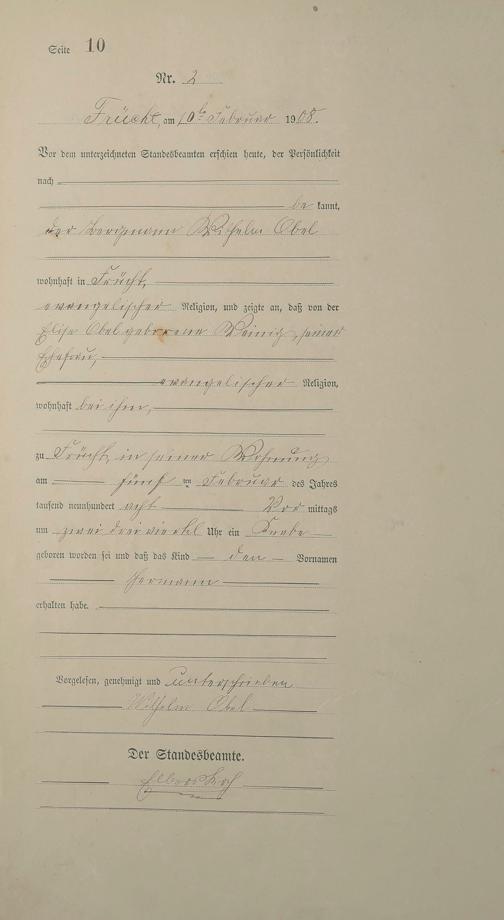 Seite 10
Nr. 2
Frücht, am 10ten Februar 1908.
Vor dem unterzeichneten Standesbeamten erschien heute, der Persönlichkeit
nach
be kannt,
der Bergmann Wilhelm Obel
wohnhaft in Frücht,
evangelischer Religion, und zeigte an, daß von der
Elise Obel geborene Weinig, seiner
Ehefrau,
evangelischer Religion,
wohnhaft bei ihm,
zu Frücht, in seiner Wohnung
am fünf ten Februar des Jahres
tausend neunhundert acht Vor mittags
um zwei drei viertel Uhr ein Knabe
geboren worden sei und daß das Kind den Vornamen
Hermann
erhalten habe.
Vorgelesen, genehmigt und unterschrieben
Wilhelm Obel
Der Standesbeamte.